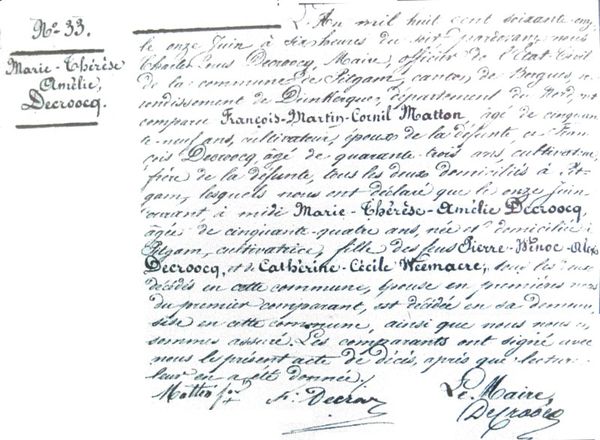 No. 33.
Marie-Thérèse
Amélie,
Decroocq.
L'An mil huit cent soixante-onze
le onze Juin à six heures du soir pardevant nous
Charles Decroocq, Maire, officier de l'Etat-Civil
de la commune de Pitgam, canton de Bergues,
rondissement de Dunkerque, département du Nord, est
comparu François-Martin-Cornil Matton, âgé de cinquan
te-neuf ans, cultivateur, époux de la défunte et Fran
çois Decroocq âgé de quarante-trois ans, cultivateur
frère de la défunte, tous les deux domiciliés à Pit
gam, lesquels nous ont déclaré que le onze Juin
courant à midi Marie-Thérèse-Amélie Decroocq,
âgée de cinquante-quatre ans, née et domiciliée à
Pitgam, cultivatrice, fille des feus Pierre-Winoc-Alex
Decroocq, et de Cathérine-Cécile Weemaere, tous les deux
décédés en cette commune, épouse en premières noces
du premier comparant, est décédée en sa demeu
re sise en cette commune, ainsi que nous nous
sommes assuré. Les comparants ont signé avec
nous le présent acte de décès, après que lectur
leur en a été donnée.
Matton
Le Maire,
Decroocq